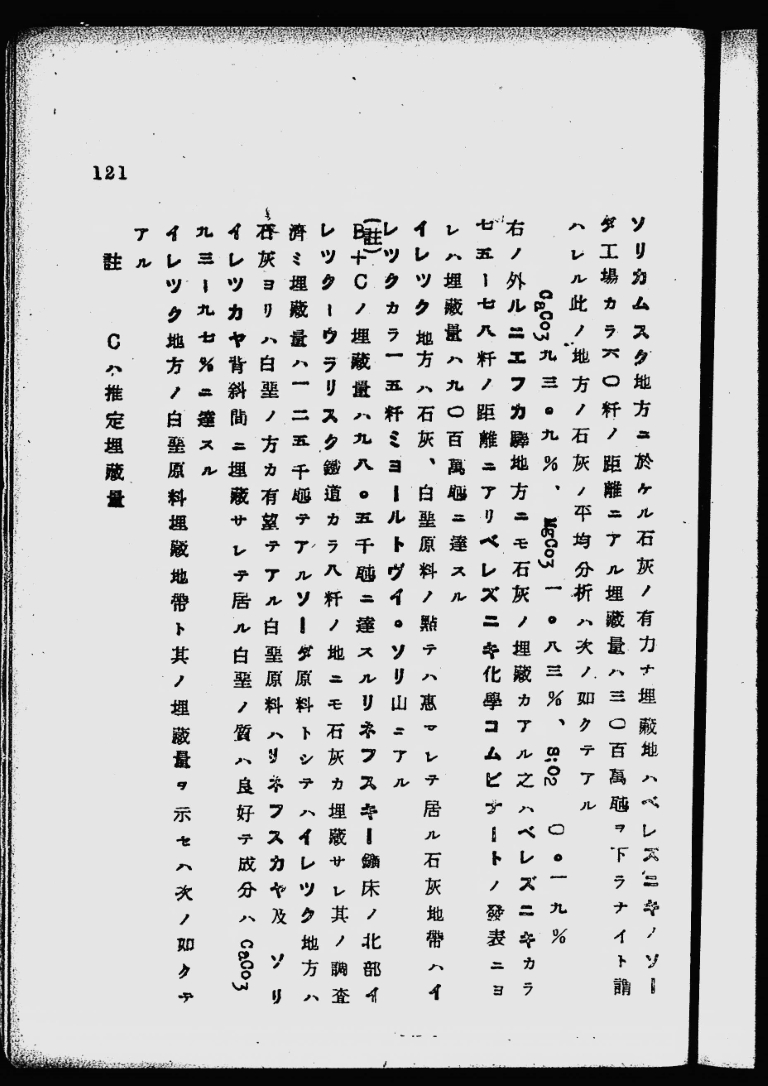 ソリカムスク地方ニ於ケル石灰ノ有力ナ埋蔵地ハベレズニキノソー
ダ工場カラ六〇粁ノ距離ニアル埋蔵量ハ三〇百萬瓲ヲ下ラナイト謂
ハレル此ノ地方ノ石灰ノ平均分析ハ次ノ如クテアル
CaCo3九三。九%、MgCo3 一。八三%、SiO2 〇。一九%
右ノ外ルニエフカ驛地方ニモ石灰ノ埋蔵カアル之ハベレズニキカラ
七五ー七八粁ノ距離ニアリベレズニキ化學コムビナートノ發表ニヨ
レハ埋蔵量ハ九〇百萬瓲ニ達スル
イレツク地方ハ石灰、白堊原料ノ點テハ惠マレテ居ル石灰地帶ハイ
レツクカラ一五粁ミヨールトヴイ。ソリ山ニアル
(註)
B+Cノ埋蔵量ハ九八。五千瓲ニ達スルリネフスキー鑛床ノ北部イ
レツクーウラリスク鐵道カラ八粁ノ地ニモ石灰カ埋蔵サレ其ノ調査
濟ミ埋蔵量ハ一二五千瓲テアルソーダ原料トシテハイレツク地方ハ
石灰ヨリハ白堊ノ方カ有望テアル白堊原料ハリネフスカヤ及 ソリ
イレツカヤ背斜間ニ埋蔵サレテ居ル白堊ノ質ハ良好テ成分ハCaCo3
九三ー九七%ニ達スル
イレツク地方ノ白堊原料埋蔵地帶ト其ノ埋蔵量ヲ示セハ次ノ如クテ
アル
註 Cハ推定埋蔵量
121